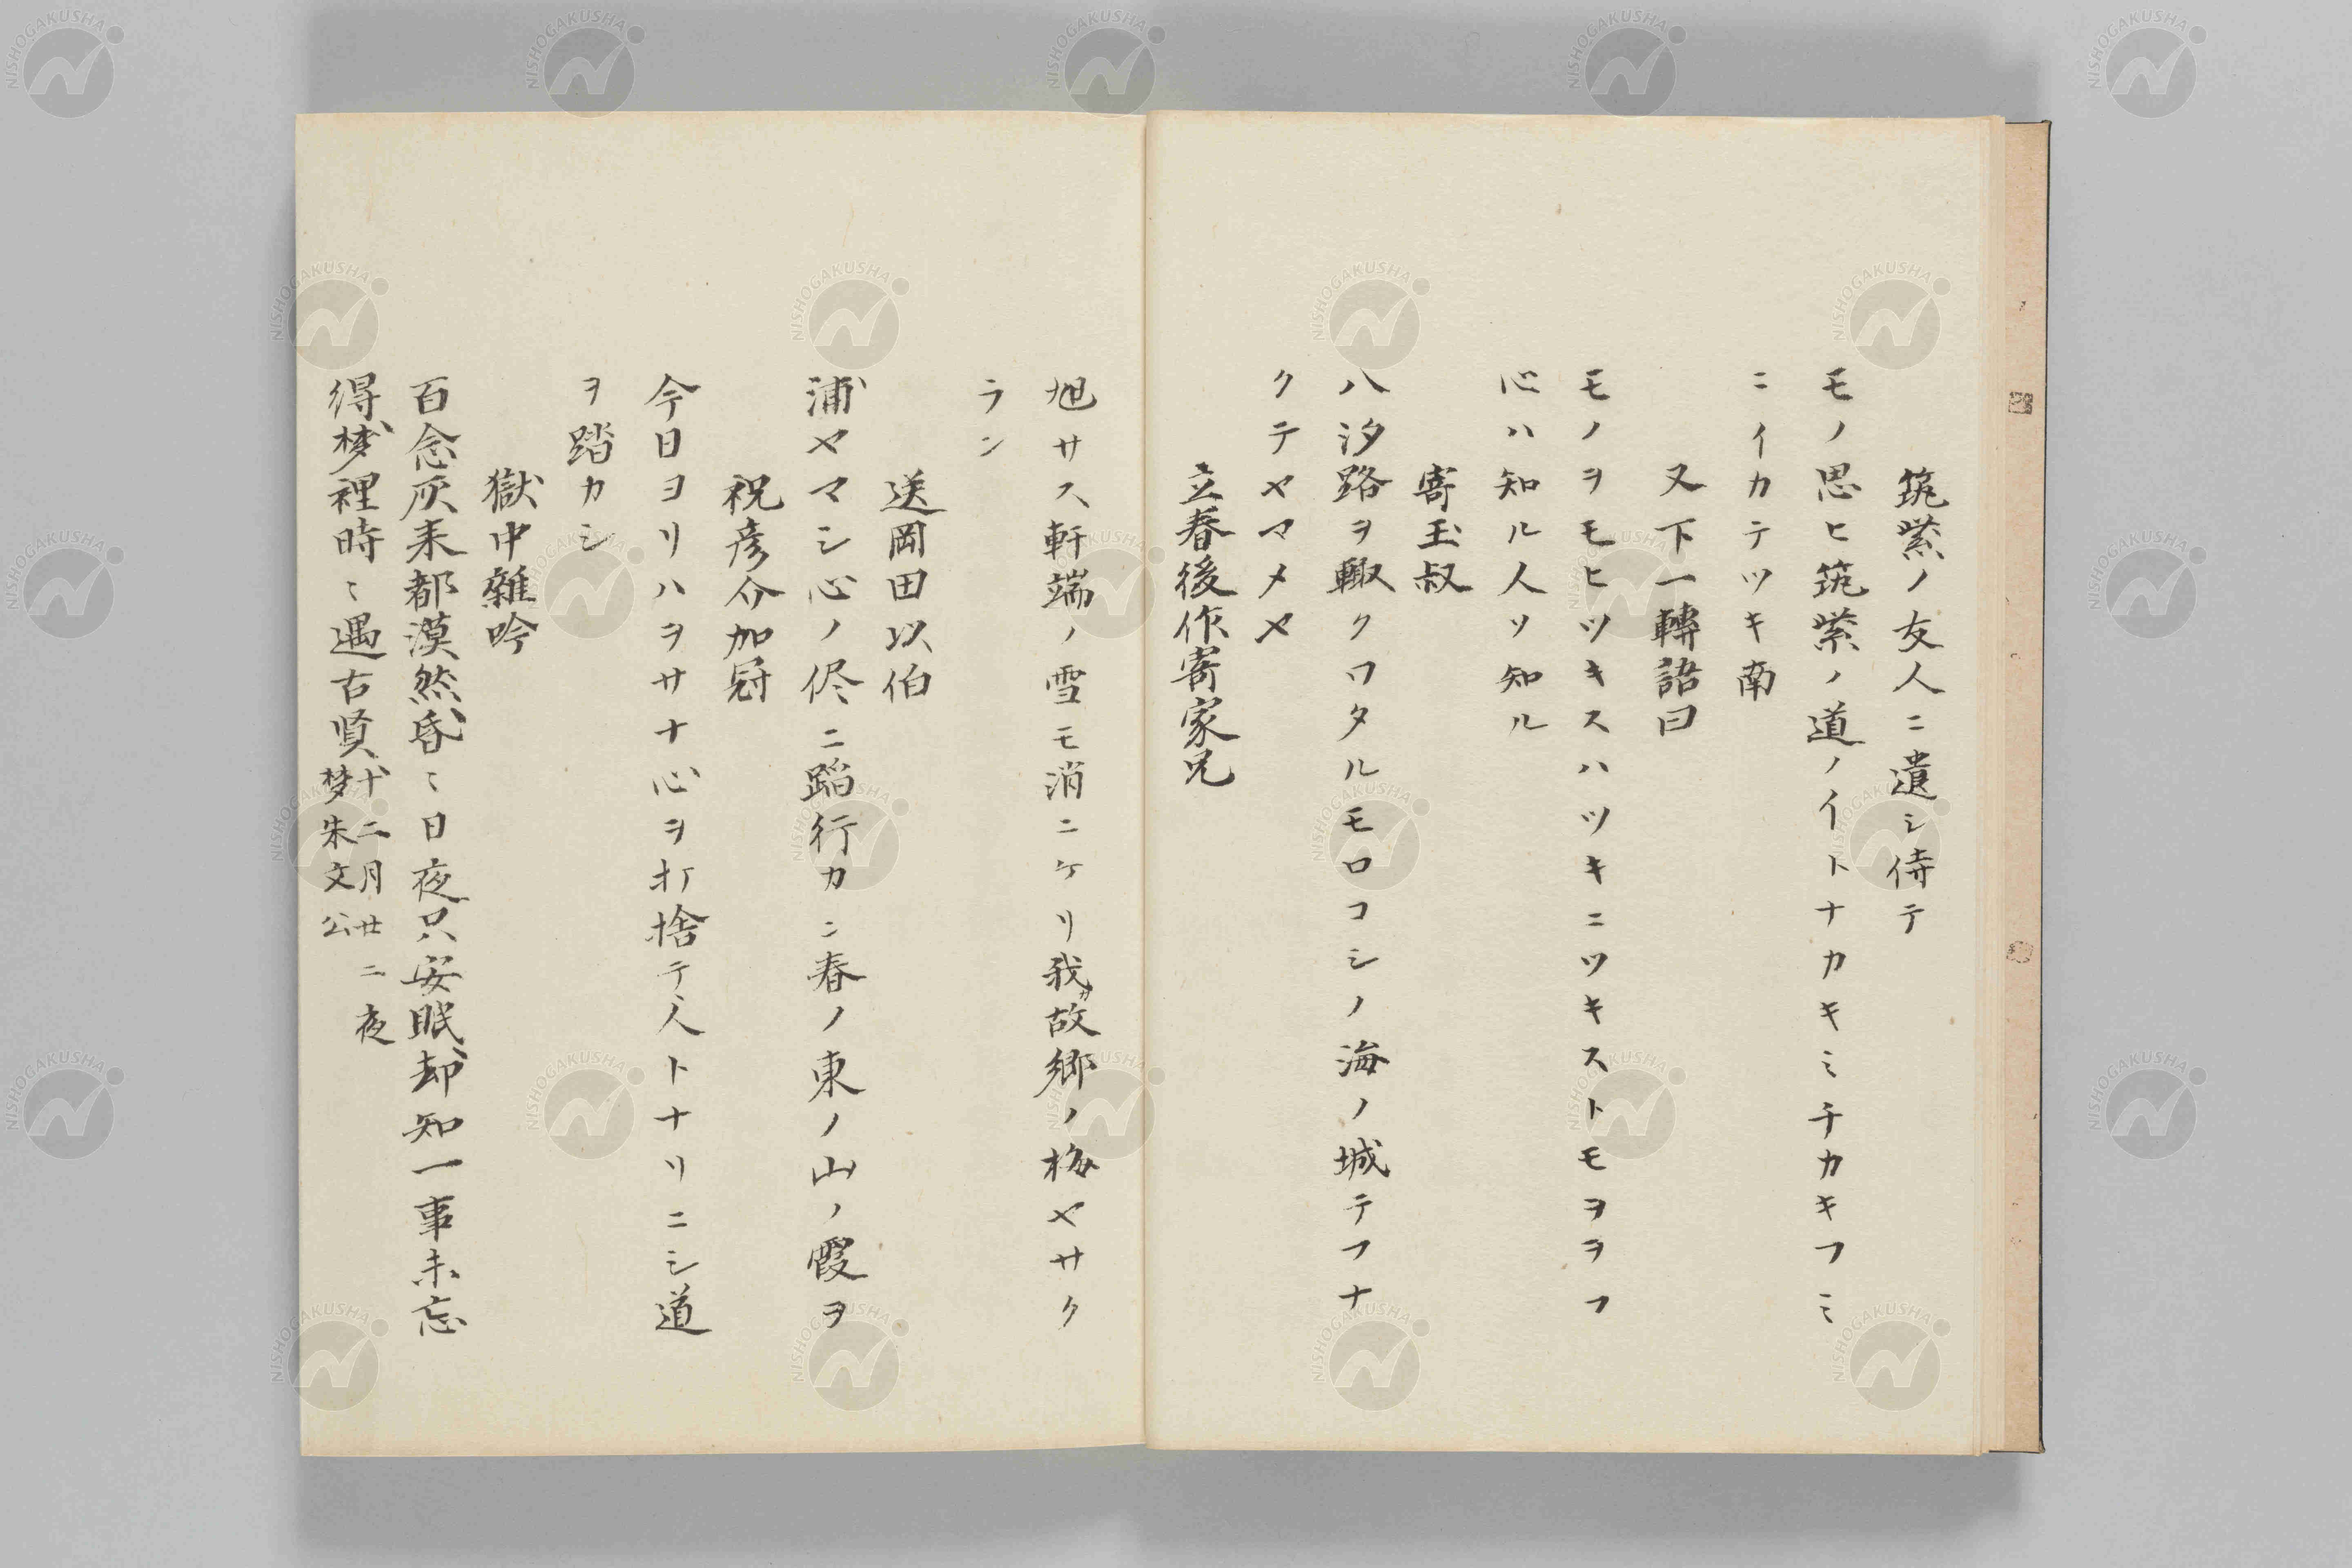 筑紫ノ友人ニ遣シ侍テ
モノ思ヒ筑紫ノ道ノイトナカキミチカキフミ
ニイカテツキ南
又下一轉語曰
モノヲモヒツキスハツキニツキストモヲヲフ
心ハ知ル人ソ知ル
寄玉叔
八汐路ヲ輙クワタルモロコシノ海ノ城テフナ
クテヤマメヤ
立春後作寄家兄
旭サス軒端ノ雪モ消ニケリ我カ故郷ノ梅ヤサク
ラン
送岡田以伯
浦ヤマシ心ノ侭ニ蹈行カン春ノ東ノ山ノ霞ヲ
祝彦介加冠
今日ヨリハヲサナ心ヲ打捨テ人トナリニシ道
ヲ踏カシ
獄中雜吟
百念灰来都漠然昏〻日夜只安眠却知一事未忘
得梦裡時〻遇古賢
十二月廿二夜
梦朱文公
NISHOGAKUSHA